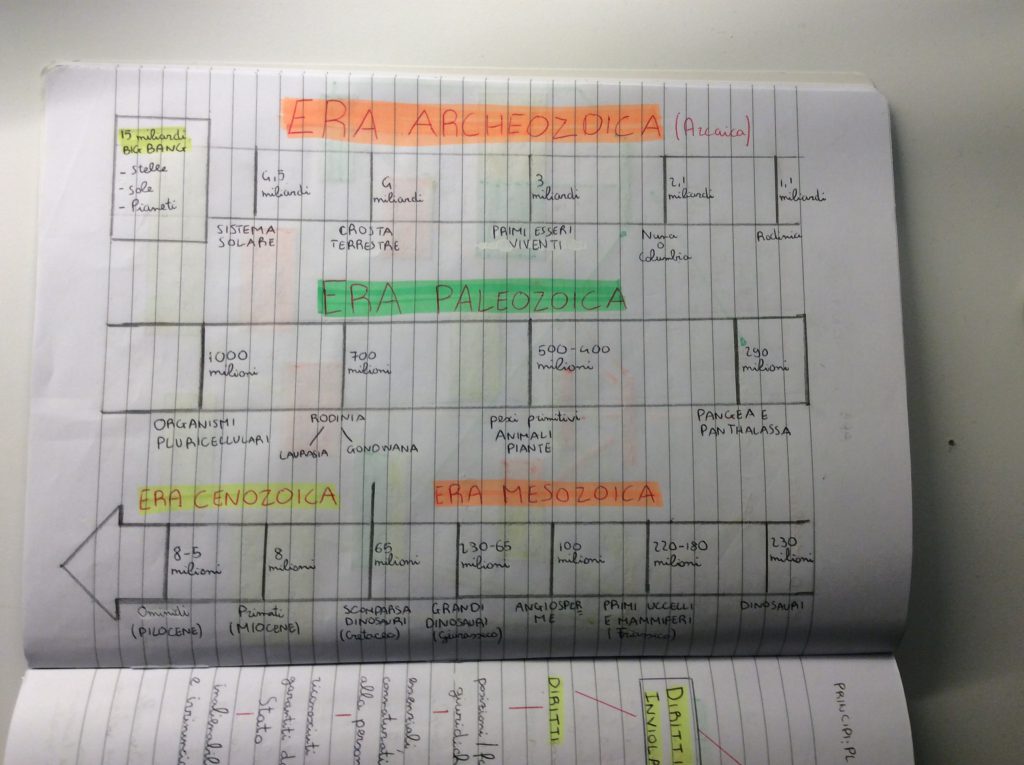 ERA ARCHEOZOICA (Arcaica)
15 miliardi
BIG BANG
- Stelle
- Sole
- Pianeti
4,5
miliardi
4
miliardi
3
miliardi
2,1
miliardi
1,1
miliardi
SISTEMA
SOLARE
CROSTA
TERRESTRE
PRIMI ESSERI
VIVENTI
Nuna
o
Columbia
Rodinia
ERA PALEOZOICA
1000
milioni
700
milioni
500-400
milioni
290
milioni
ORGANISMI
PLURICELLULARI
RODINIA
LAURASIA
GONDWANA
pesci primitivi
ANIMALI
PIANTE
PANGEA E
PANTHALASSA
ERA CENOZOICA
ERA MESOZOICA
8-5
milioni
8
milioni
65
milioni
230-65
milioni
100
milioni
220-180
milioni
230
milioni
Ominidi
(PILOCENE)
Primati
(MIOCENE)
SCOMPARSA
DINOSAURI
(Cretaceo)
GRANDI
DINOSAURI
(Giurassico)
ANGIOSPER
ME
PRIMI UCCELLI
E MAMMIFERI
(Triassico)
DINOSAURI
PRINCIPI: PL
DIRITTI
INVIOLA
DIRITTI
posizioni
giuridich
essenziali,
connaturati
alla person
riconosciuti
garantiti da
Stato